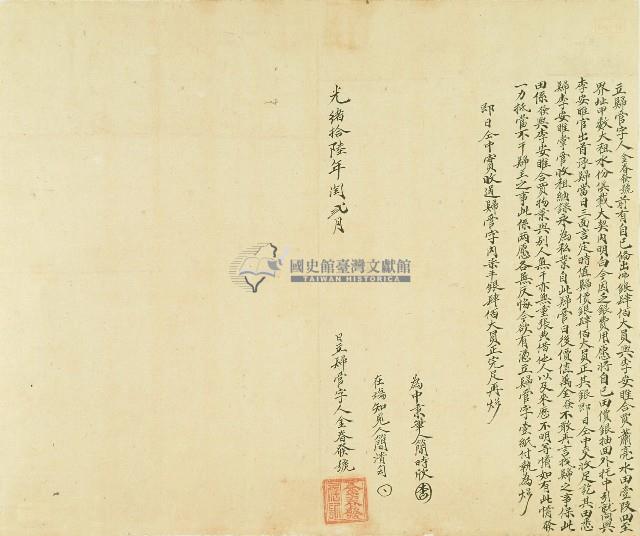 立歸管字人金春發號前有自己備出佛銀肆佰大員與李安睢合買蕭亮水田壹段四至
界址甲數大租水份俱載大契內明白今因乏銀費用愿將自己田價銀抽回外托中引就向與
李安睢官出首承歸當日三面言定時值歸價銀肆佰大員正其銀即日仝中交收足訖其田悉
歸李安睢掌管收租納課永為私業自此歸管日後價值萬金發不敢再言找歸之事保此
田係發與李安睢合買物業與別人無干亦無重張典借他人以及來歷不明等情如有此情發
一力抵當不干歸主之事此係兩愿各無反悔今欲有憑立歸管字壹紙付執為炤
即日仝中實收過歸管字內業平銀肆佰大員正完足再炤
為中兼筆人簡時欣
在場知見人簡清司
光緒拾陸年閏弍月 日立歸管字人金春發號
國史館臺灣文獻館
TAIWAN HISTORICA